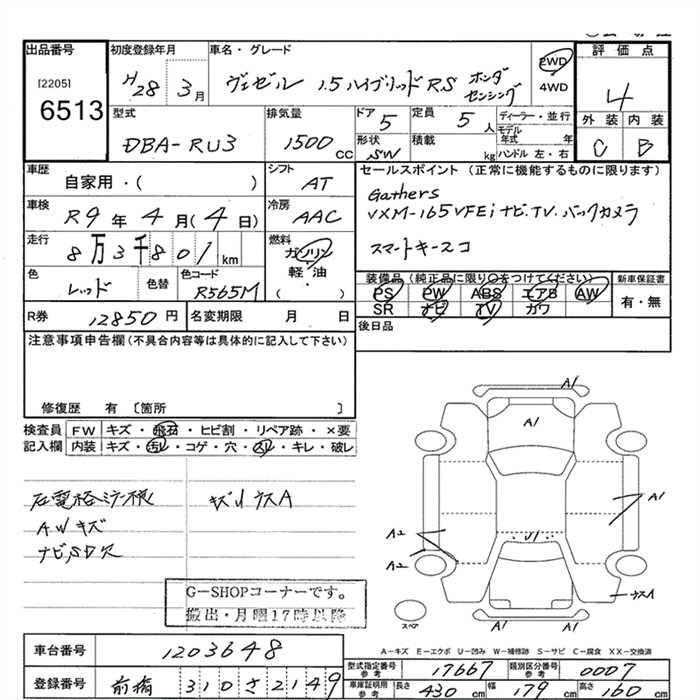 出品番号 初度登録年月 車名・グレード 評価点
[2205] H28 3月 ヴェゼル 1.5ハイブリッドRS ホンダ 2WD
センシング 4WD 4
6513 型式 排気量 ドア 5 定員 5人 ディーラー・並行 外装 内装
DBA-RU3 1500cc 形状 SW 積載 kg モデル年式 年 C B
ハンドル 左・右
車歴 シフト セールスポイント (正常に機能するものに限ります)
自家用・( ) AT Gathers
車検 冷房 VXM-165VFEi ナビ.TV.バックカメラ
R9年4月(4日) AAC
走行 燃料 スマートキー2コ
8万3千801km ガソリン
軽・油
( )
色 レッド 色替 色コード R565M 装備品 (純正品に限り○をつけてください) 新車保証書
PS PW ABS エアB AW 有・無
SR ナビ TV カワ
R券 12850円 名変期限 月 日 後日品
注意事項申告欄(不具合内容等は具体的に記入して下さい)
修復歴 有 〔箇所 〕
検査員 FW キズ・飛石・ヒビ割・リペア跡・×要
記入欄 内装 キズ・汚レ・コゲ・穴・スレ・キレ・破レ
キズ ウスA
AWキズ
ナビSD欠
G-SHOPコーナーです。
搬出・月曜17時以降
A1
A1
A1
A2
A2
U1
ウスA
A1 A1
スペア
A-キズ E-エクボ U-凹み W-補修跡 S-サビ C-腐食 XX-交換済
車台番号 1203648
型式指定番号 参考 17667 類別区分番号 参考 0007
登録番号 前橋 310 さ 2149
車庫証明用 参考 長さ 430cm 幅 179cm 高さ 160cm